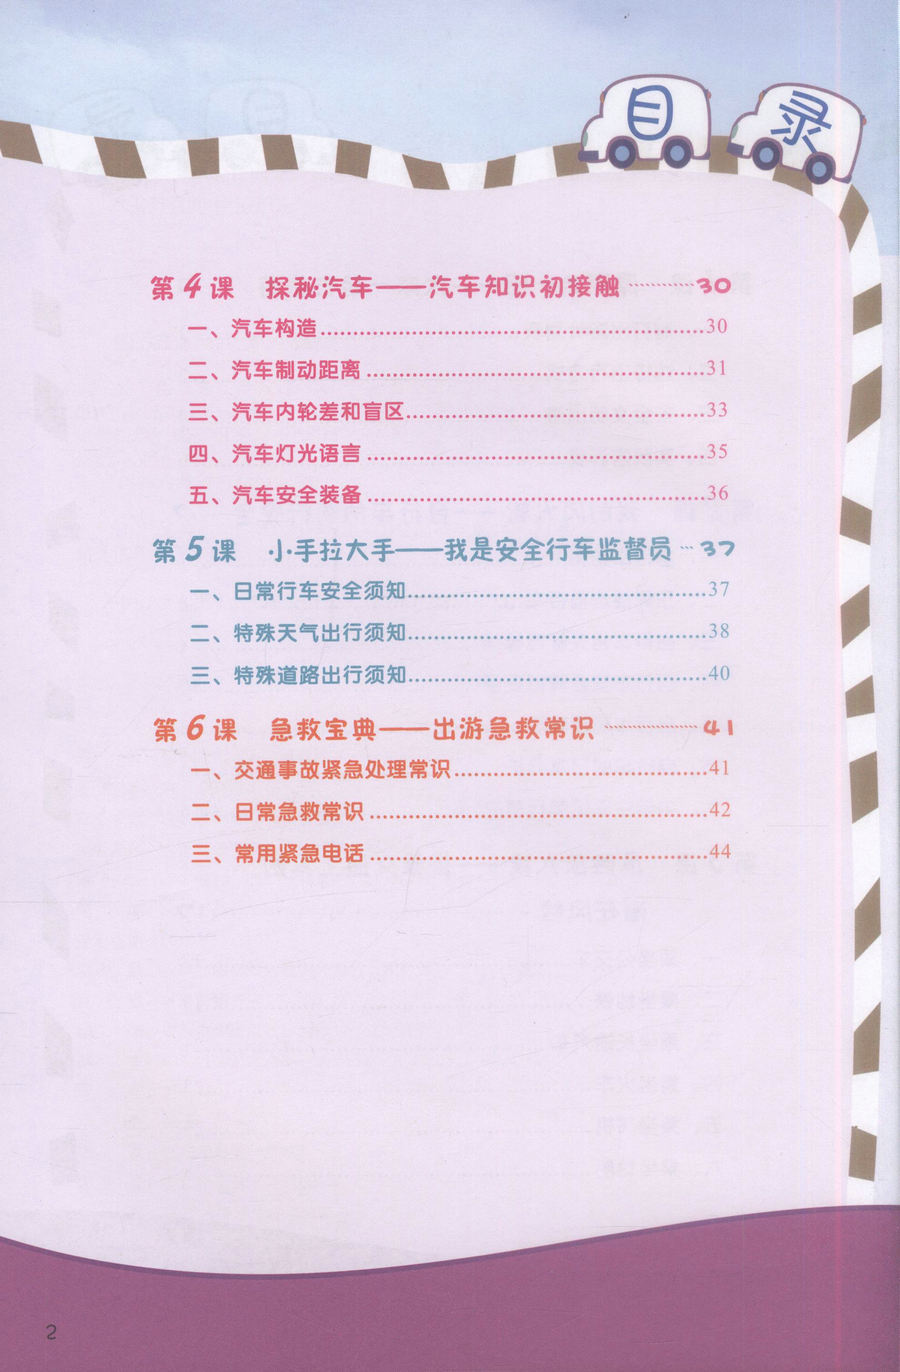 目录
第4课 探秘汽车——汽车知识初接触 ………… 30
一、汽车构造 ………… 30
二、汽车制动距离 ………… 31
三、汽车内轮差和盲区 ………… 33
四、汽车灯光语言 ………… 35
五、汽车安全装备 ………… 36
第5课 小手拉大手——我是安全行车监督员 … 37
一、日常行车安全须知 ………… 37
二、特殊天气出行须知 ………… 38
三、特殊道路出行须知 ………… 40
第6课 急救宝典——出游急救常识 ………… 41
一、交通事故紧急处理常识 ………… 41
二、日常急救常识 ………… 42
三、常用紧急电话 ………… 44
2